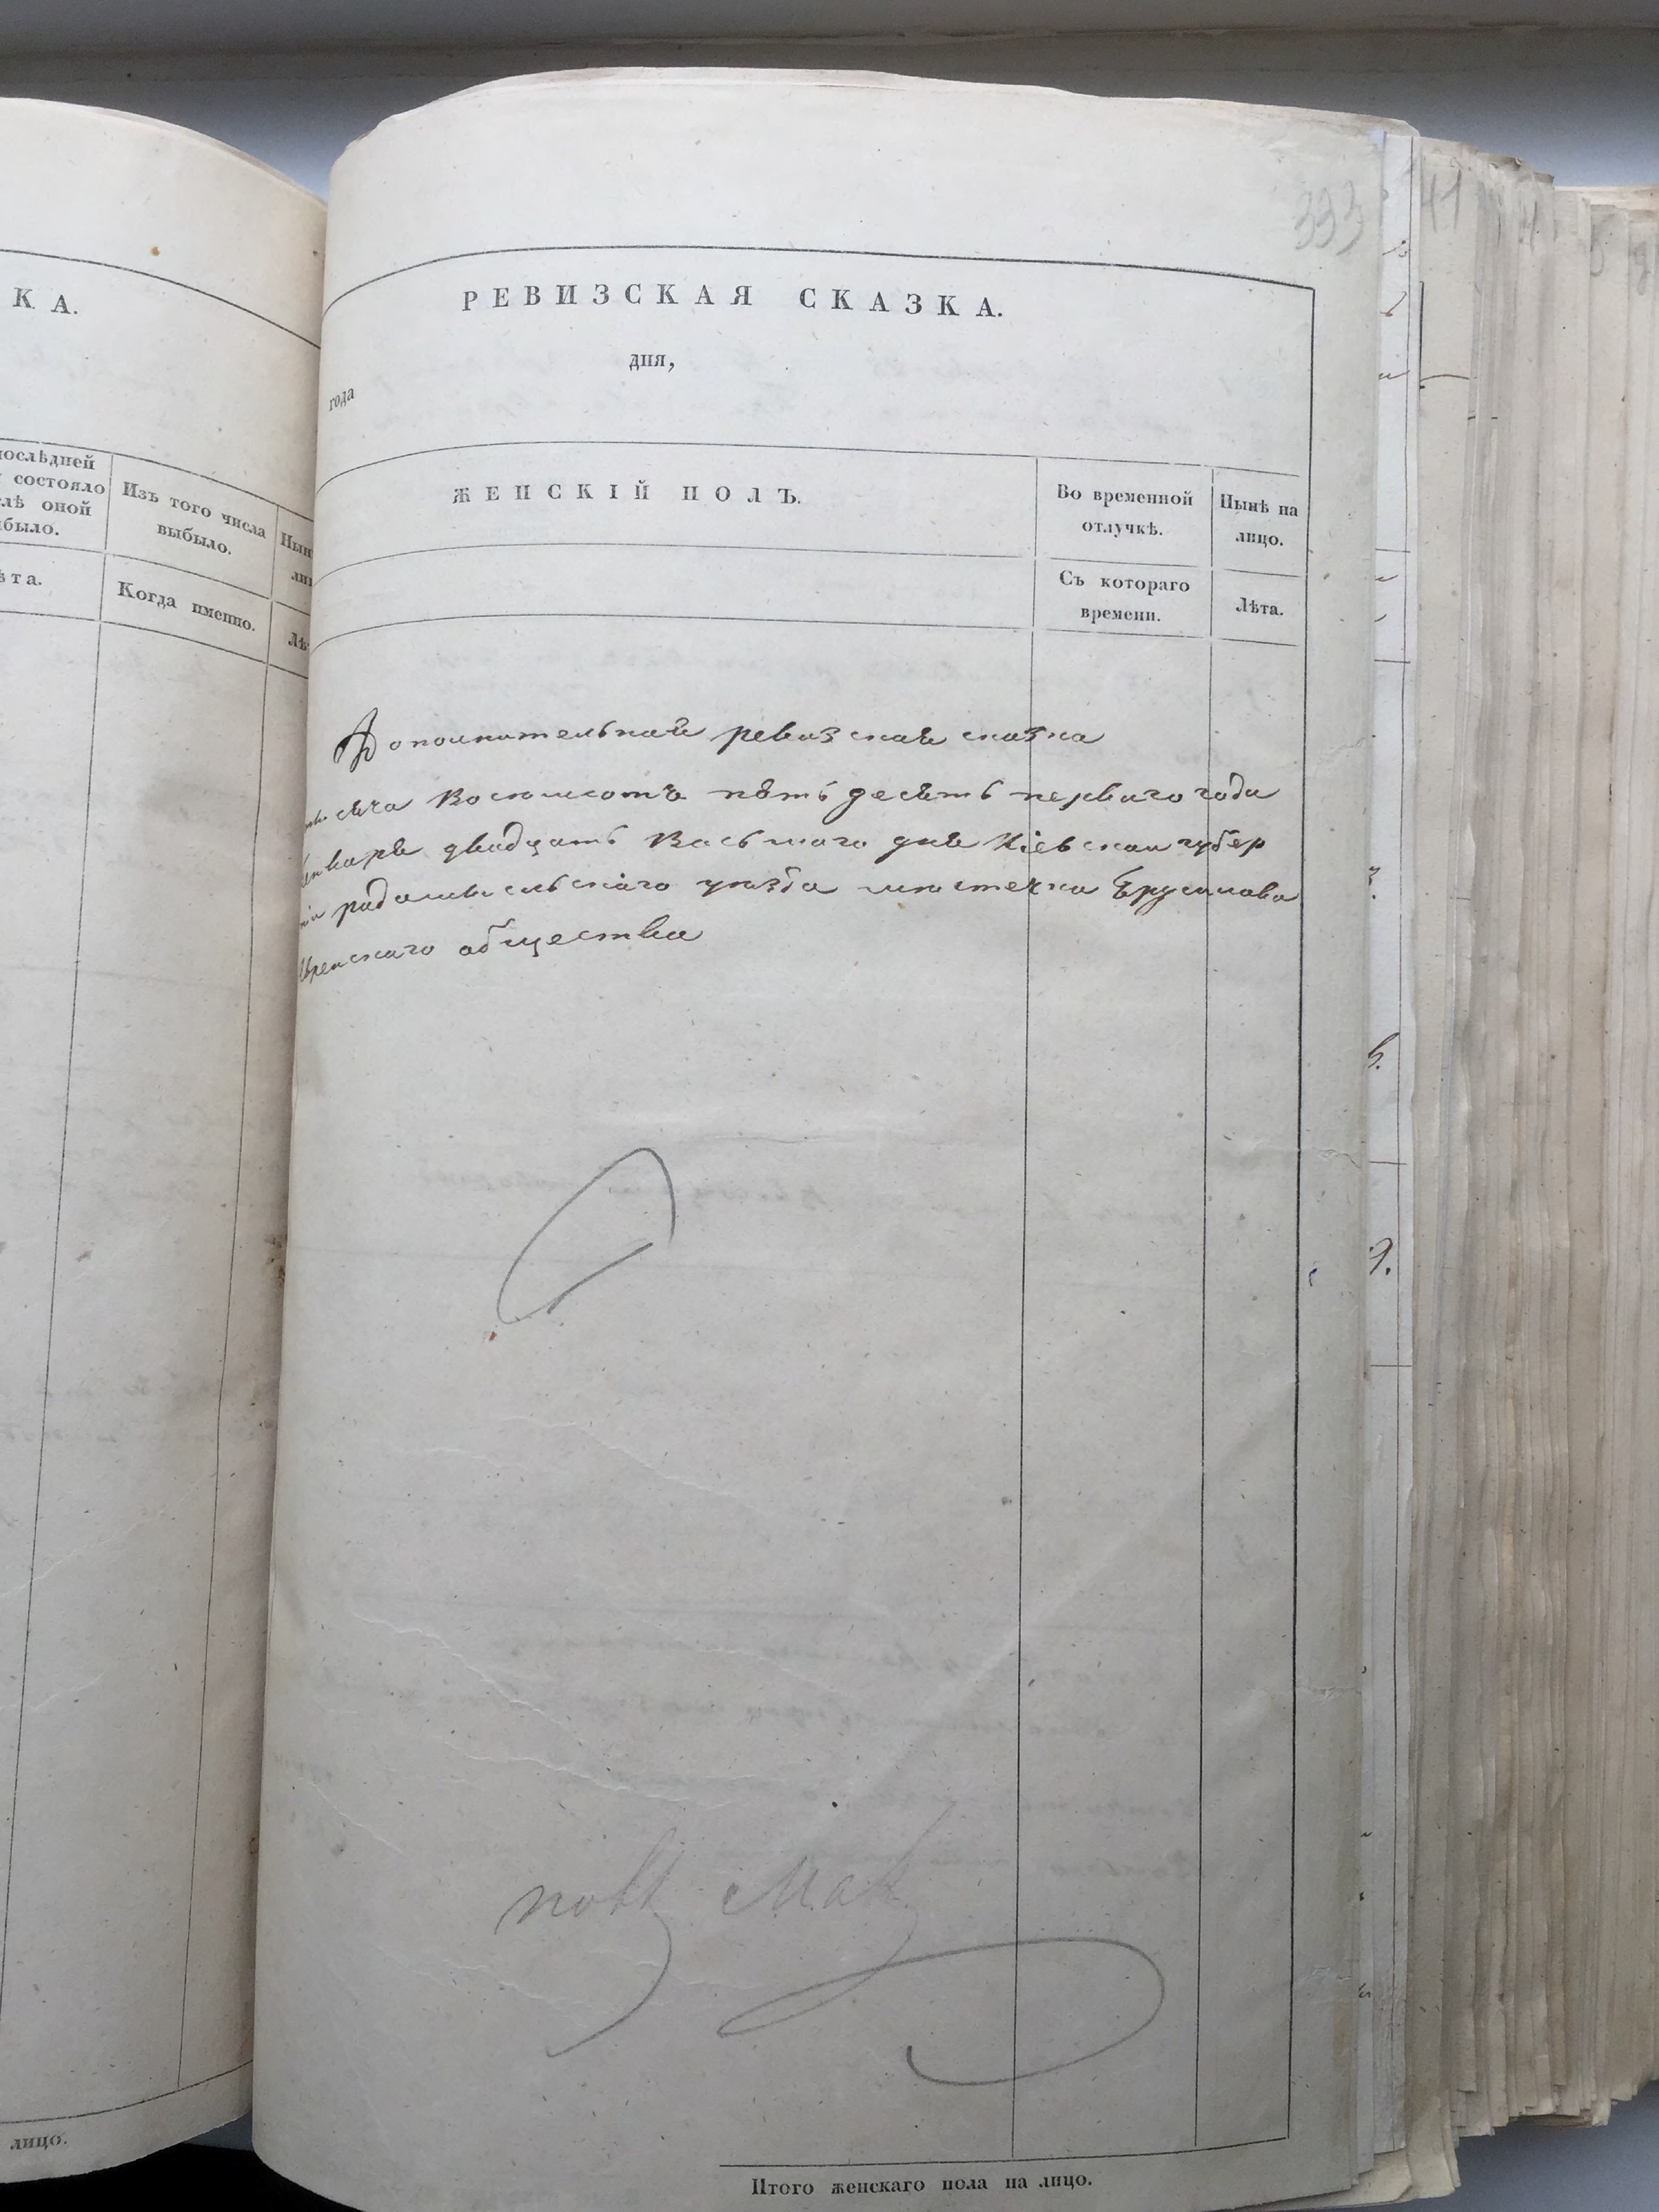 К А.
послѣдней
состояло
слѣ оной
было.
Изъ того числа
выбыло.
Ѣта.
Когда именно.
лицо.
393
41
РЕВИЗСКАЯ СКАЗКА.
дня,
года
ЖЕНСКІЙ ПОЛЪ.
Во временной
отлучкѣ.
Нынѣ на
лицо.
Съ котораго
времени.
Лѣта.
Дополнительная ревизская сказка
тысяча восемсотъ пять десять перваго года
генваря двадцать васьмаго дня Кіевской губер
ніи радомысльскаго уезда местечка Ерусимова
Еврейскаго общества
Итого женскаго пола на лицо.